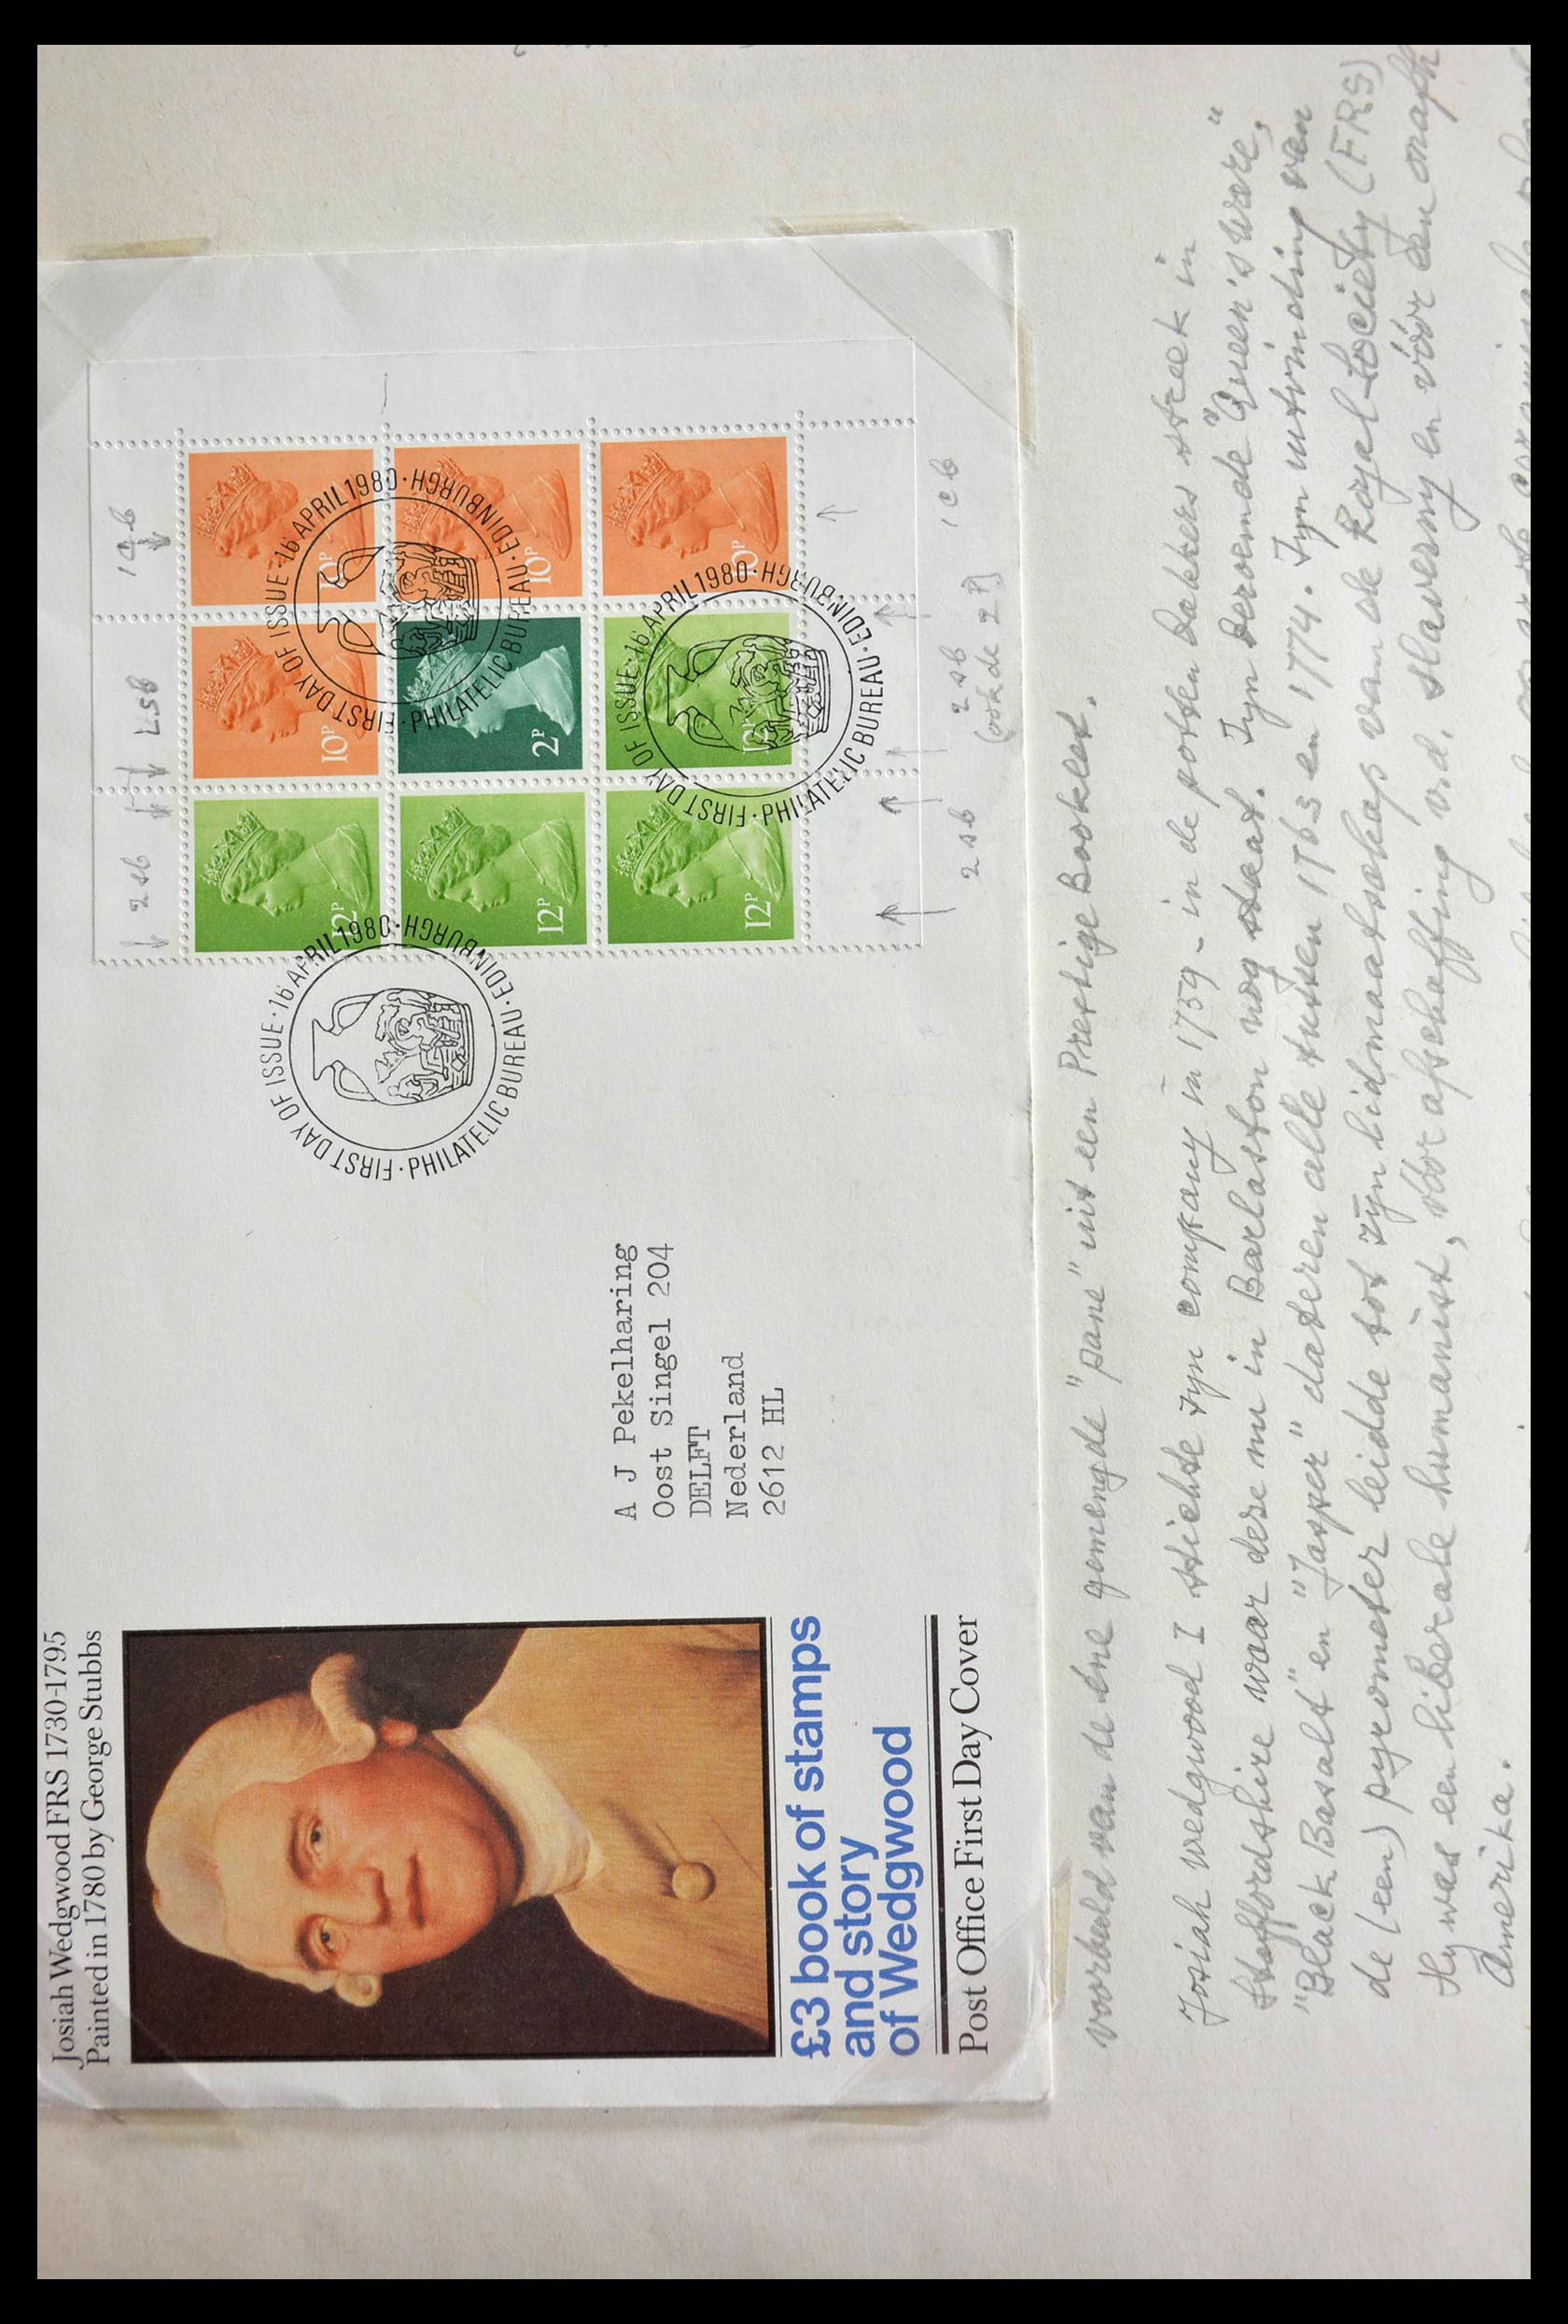 Josiah Wedgwood FRS 1730-1795
Painted in 1780 by George Stubbs
£3 book of stamps
and story
of Wedgwood
Post Office First Day Cover
A J Pekelharing
Oost Singel 204
DELFT
Nederland
2612 HL
FIRST DAY OF ISSUE · 16 APRIL 1980 · EDINBURGH · PHILATELIC BUREAU ·
FIRST DAY OF ISSUE · 16 APRIL 1980 · EDINBURGH · PHILATELIC BUREAU ·
FIRST DAY OF ISSUE · 16 APRIL 1980 · EDINBURGH · PHILATELIC BUREAU ·
2 sb
12P
10P
10P
12P
2P
10P
12P
12P
10P
2 sb
2 sb
1 cb
(ook de 2 P)
voorbeeld van de ene gemengde "pane" uit een Prestige Booklet.
Josiah Wedgwood I stichte zyn company in 1759 - in de potten bakkers streek in
Staffordshire waar deze nu in Barlaston nog staat. Zyn beroemde "Queen's ware",
"Black Basalt" en "Jasper" dateren alle tussen 1765 en 1774. Zyn uitvinding van
de (een) pyrometer leidde tot zyn lidmaatschap van de Royal Society (FRS)
Hy was een liberale humanist, vóór afschaffing v/d. slaverny en vóór een onafh
Amerika.